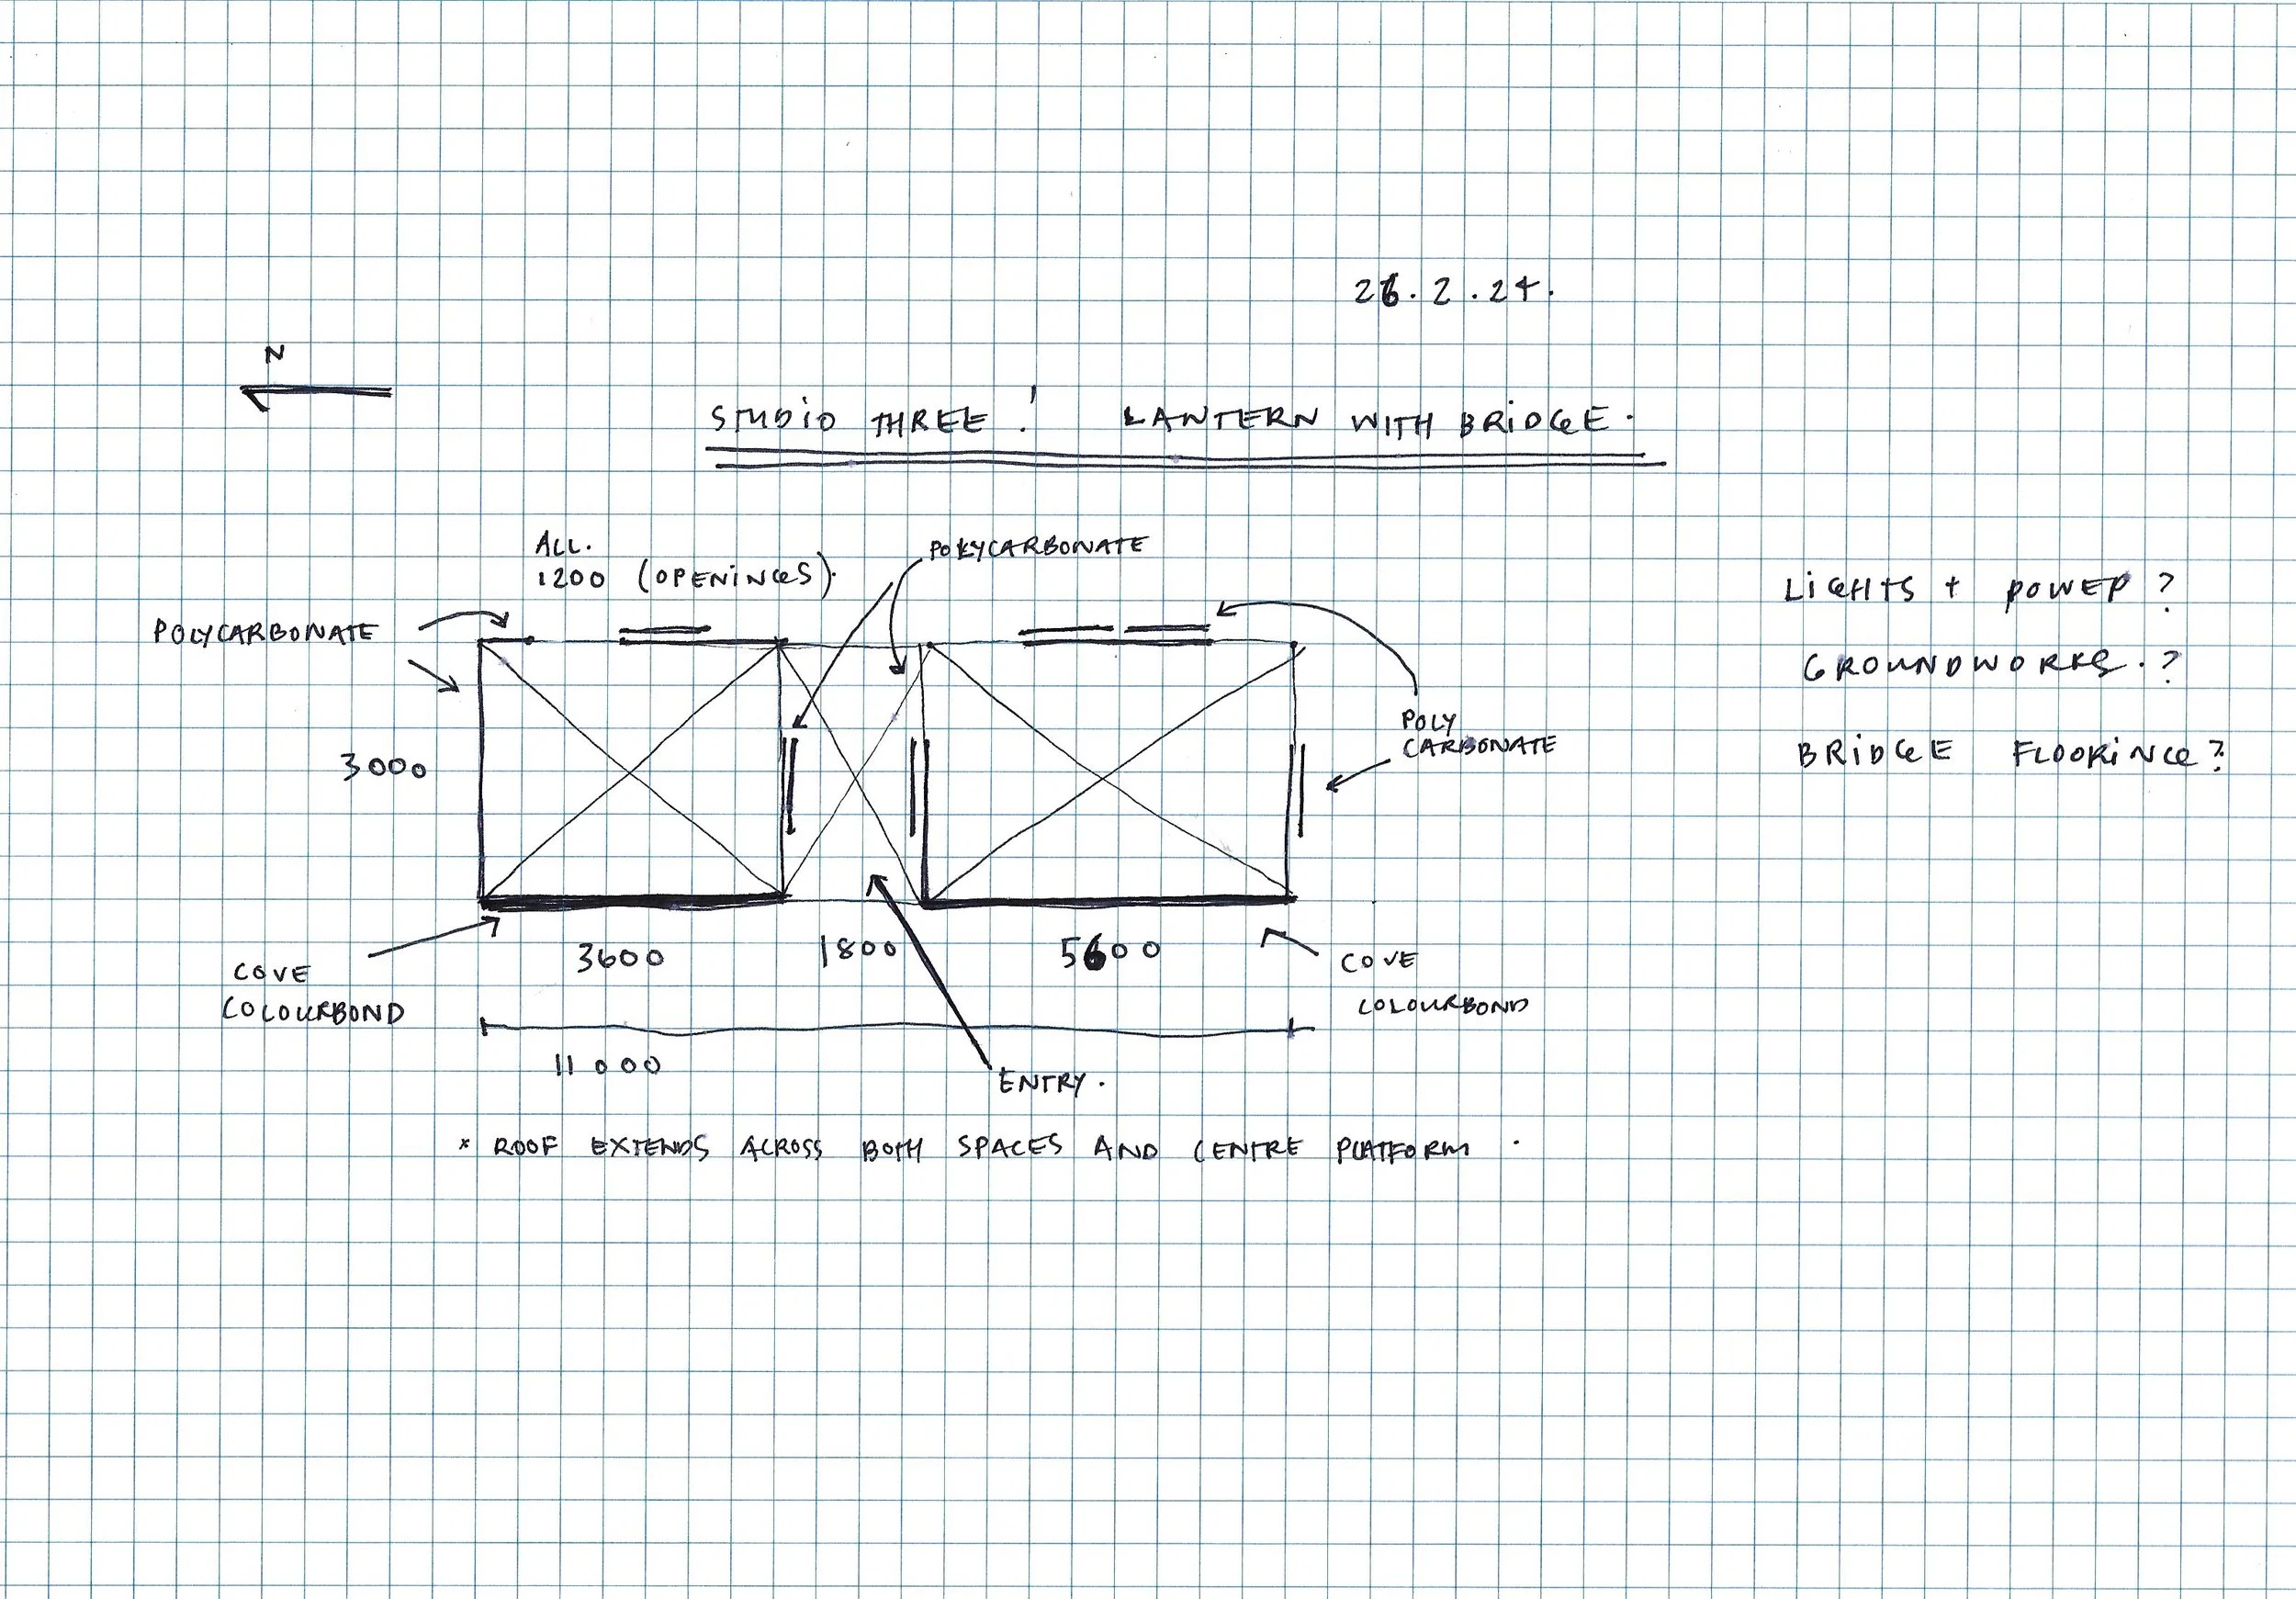 26.2.24.
N
STUDIO THREE! LANTERN WITH BRIDGE.
ALL.
1200 (OPENINGS).
POLYCARBONATE
POLYCARBONATE
LIGHTS + POWER?
GROUNDWORKS.?
BRIDGE FLOORING?
POLY
CARBONATE
3000
3600
1800
5600
COVE
COLOURBOND
COVE
COLOURBOND
11000
ENTRY.
* ROOF EXTENDS ACROSS BOTH SPACES AND CENTRE PLATFORM.